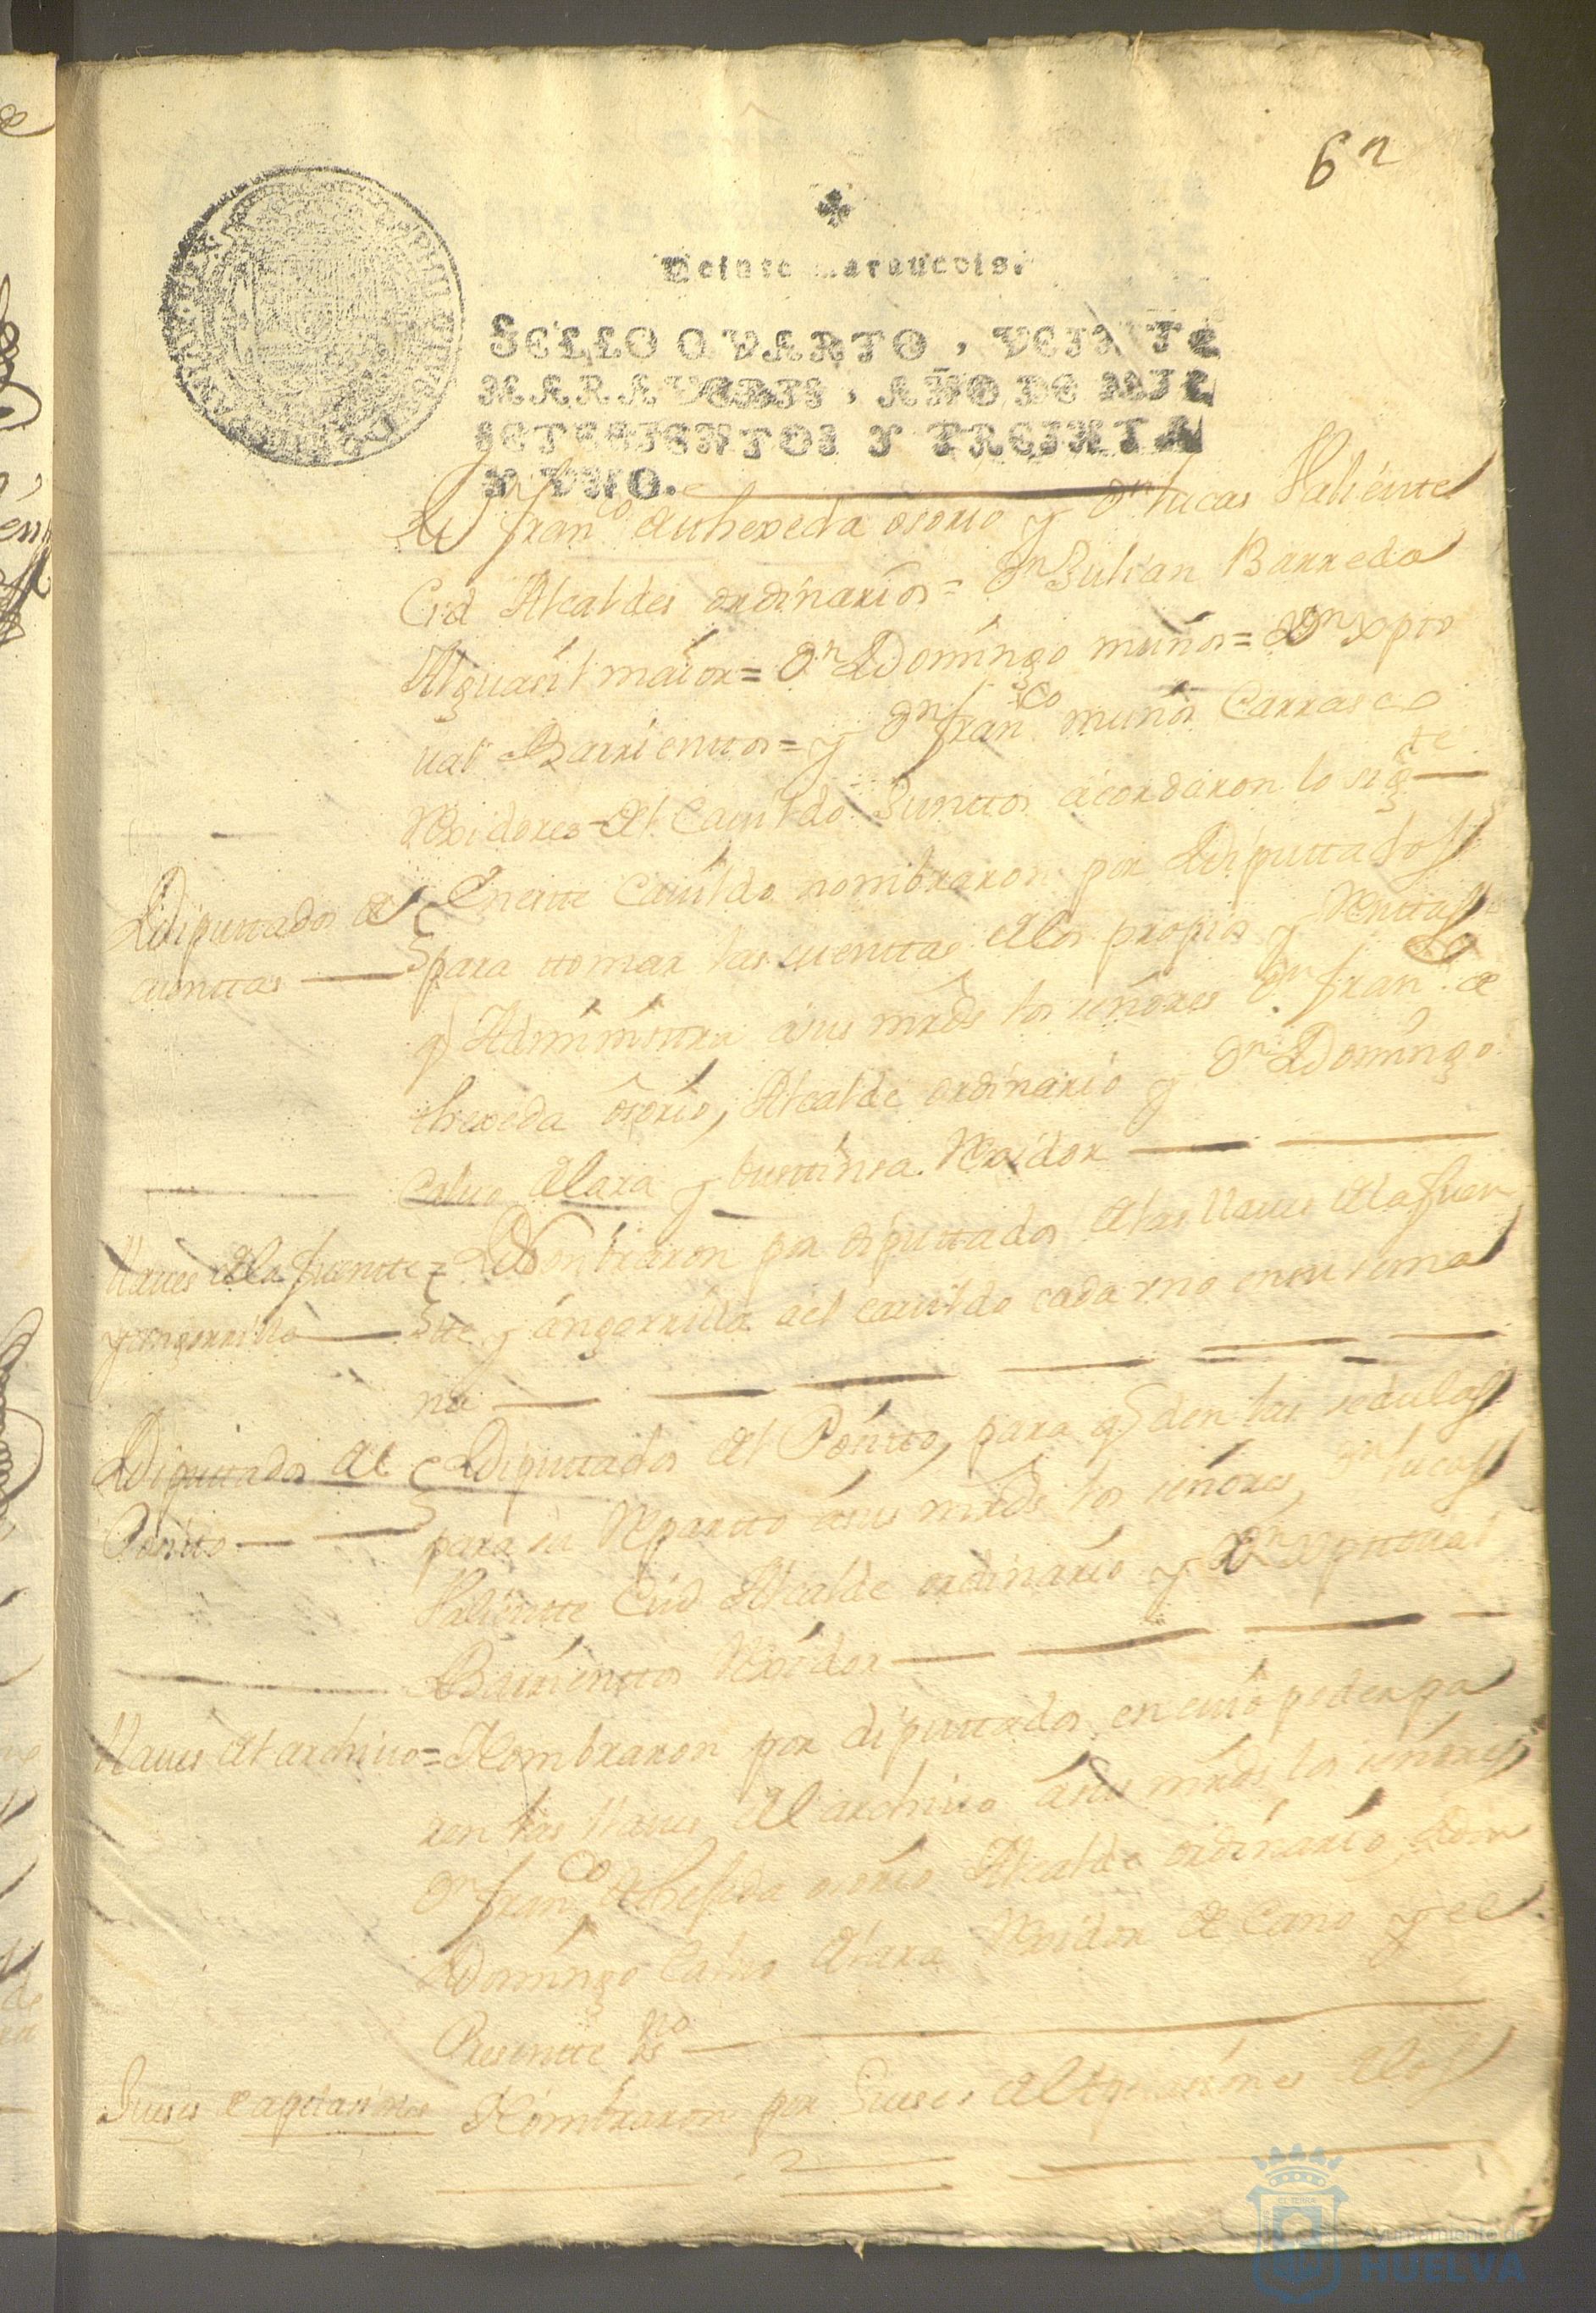 62
Veinte marauedis.
SELLO QVARTO, VEINTE
MARAVEDIS, AÑO DE MIL
SETECIENTOS Y TREINTA
Y VNO.
Dn franco dethexeda osorio y Dn lucas Valiente
Cid Alcaldes ordinarios = Dn Julian Barreda
Alguasil maior = Dn Domingo muños = Dn xpto
ual Barrienttos = y Dn franco muños Carrasco
Rexidores del Cauildo Junttos acordaron lo sigte
Diputtados de
cuenttas
En este Cauildo nombraron por Diputtados
para ttomar las cuenttas de los propios y Renttas
q Administra a sus mrds los señores Dn franco de
thexeda osorio, Alcalde ordinario y Dn Domingo
Calbo de lara y bustinsa Rexidor
llaues de la fuentte
y angorrilla
Nombraron por diputtados de las llaues de la fuen
tte y angorrilla ael cauildo cada vno en su sema
na
Diputtados del
Positto
Diputtados del Positto, para q den las sedulas
para su Repartto a sus mrds los señores Dn lucas
Valientte Cid Alcalde ordinario y Dn xpttoual
Barrienttos Rexidor
llaues del archiuo = Nombraron por diputtados en cuio poder pa
ren las llaues del archiuo a sus mrds los señores
Dn franco dethexeda osorio Alcalde ordinario, don
Domingo Calbo de lara Rexidor de Cano y el
Presentte sno
Juses
Nombraron por Juses de los
Ayuntamiento de
HUELVA